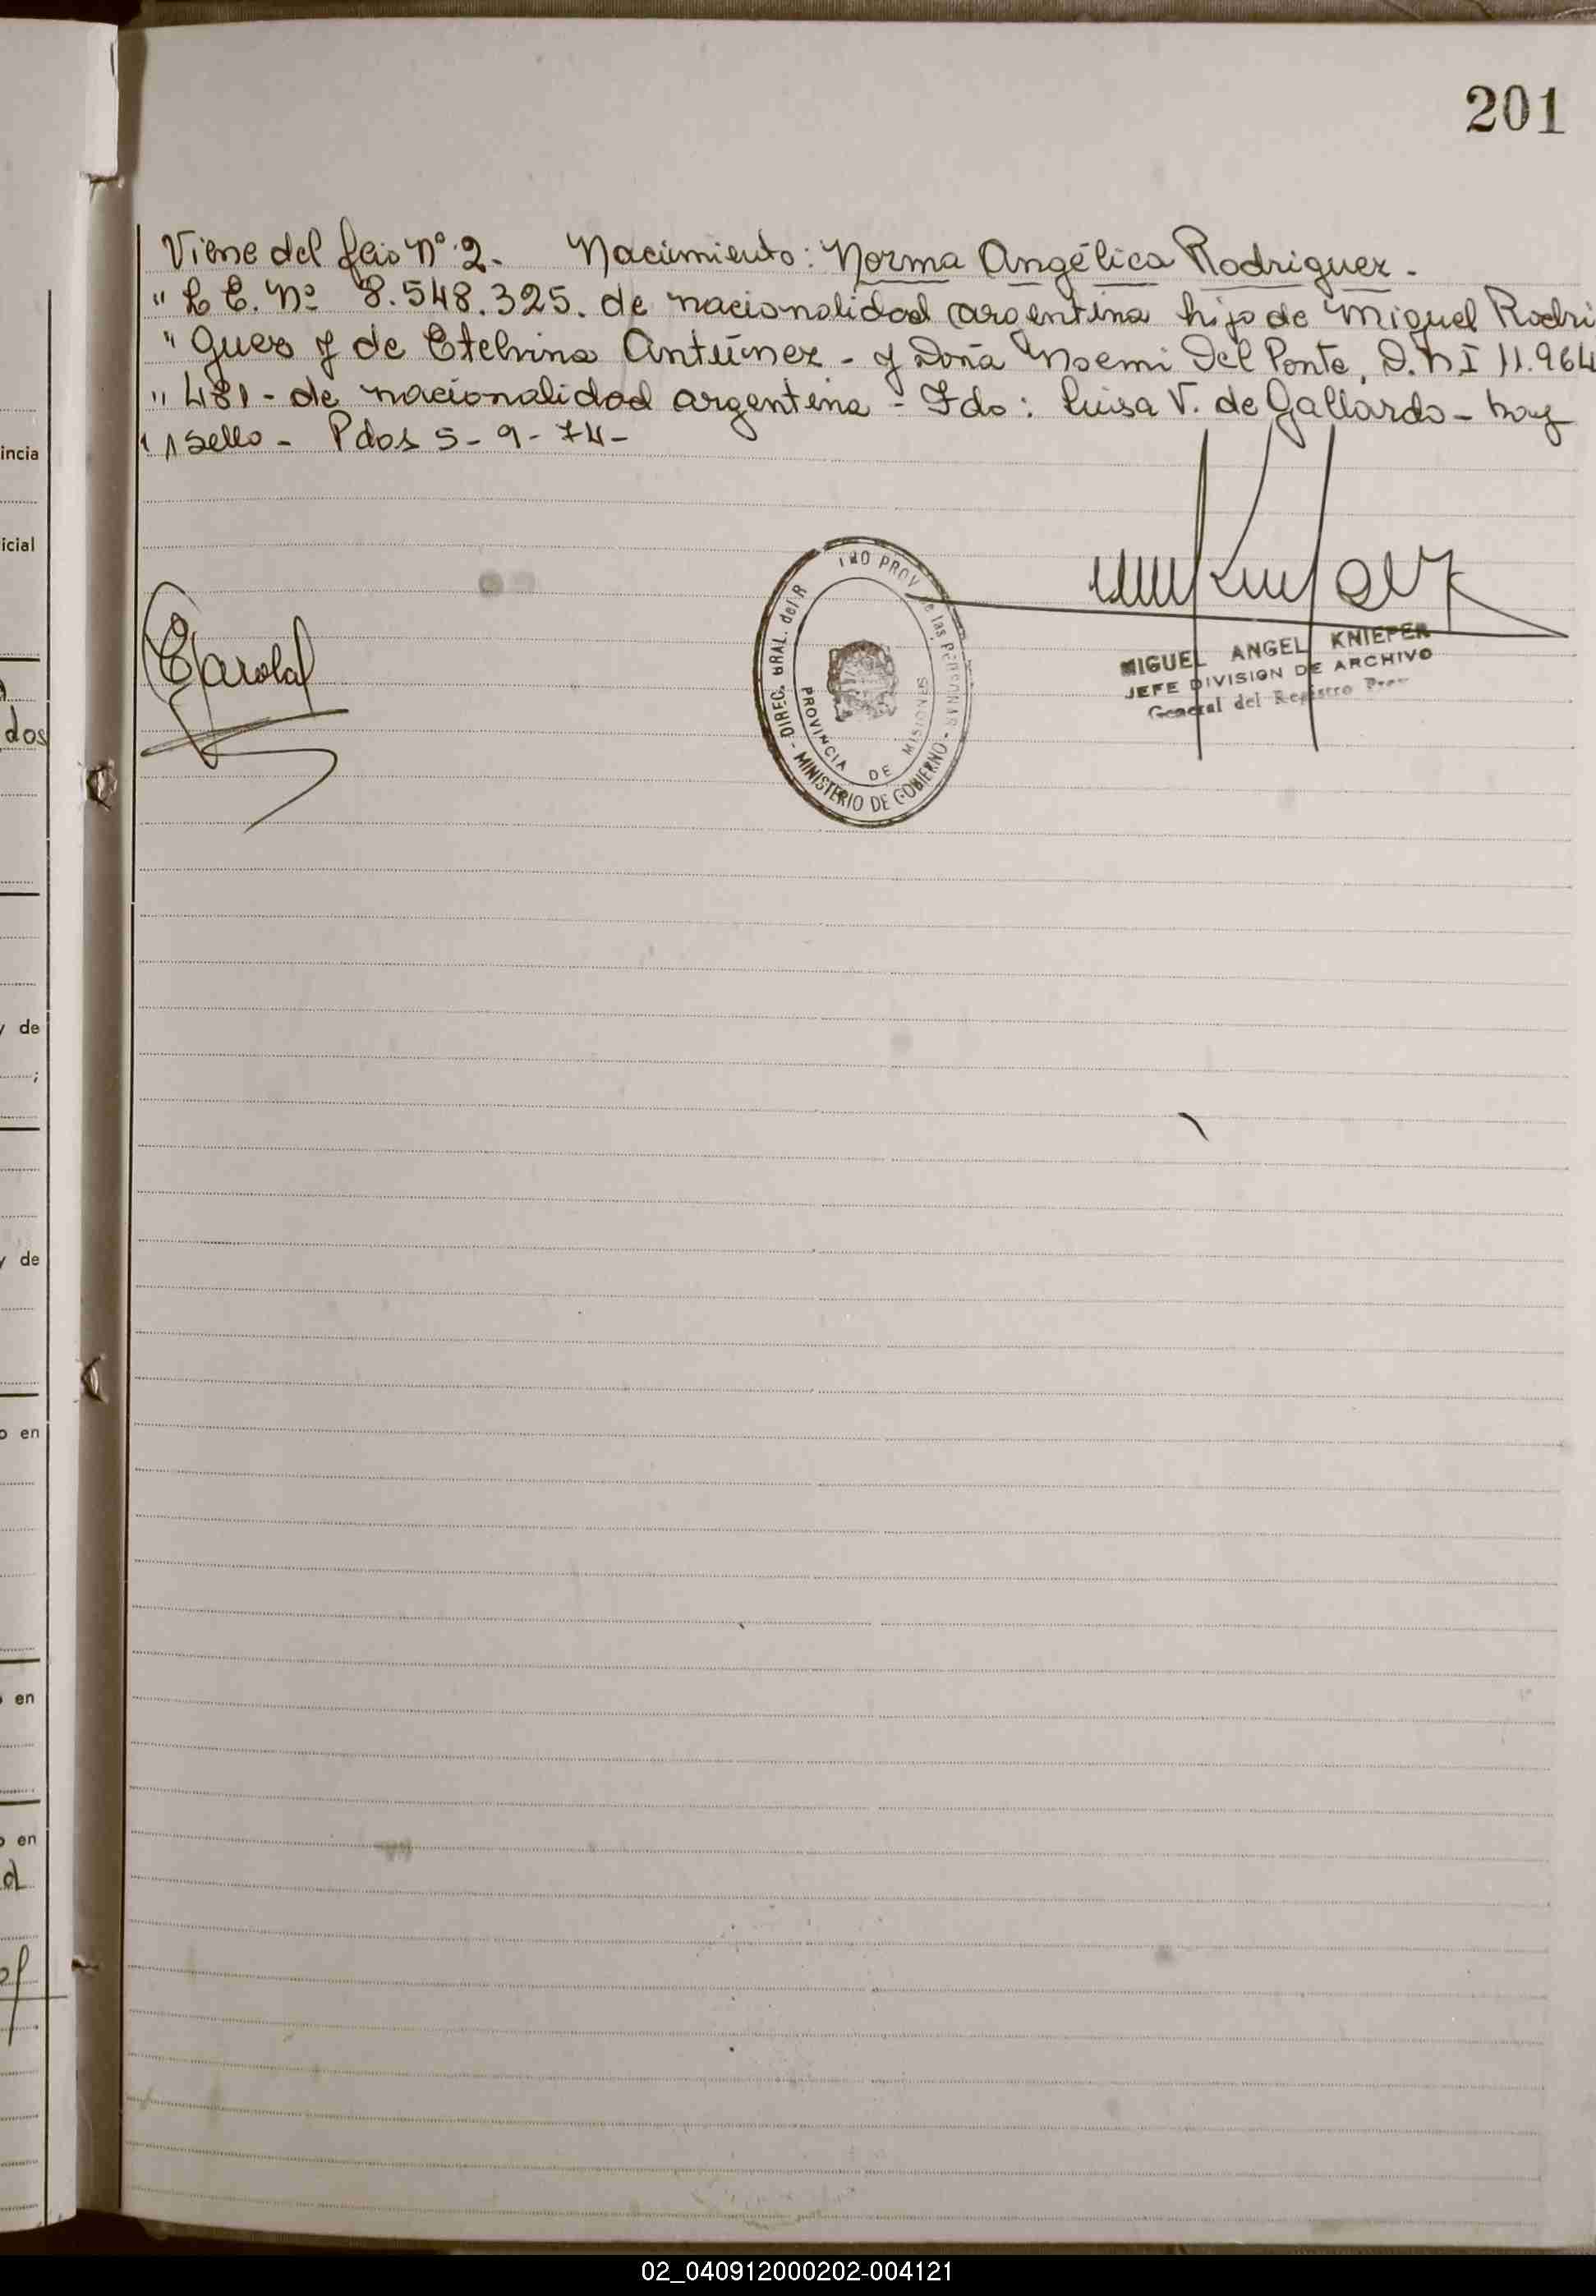 201
Viene del folio Nº 2. Nacimiento: Norma Angélica Rodriguez.
" L E. Nº 8.548.325. de nacionalidad argentina hijo de Miguel Rodri
" guez y de Etelvina Antúnez - y Doña Noemi Del Ponte, D.N I 11.964
" 481 - de nacionalidad argentina - Fdo: Luisa V. de Gallardo - hay
" 1 sello - Pdas 5 - 9 - 74 -
DIREC. GRAL. del R PROV de las PERSONAS - MINISTERIO DE GOBIERNO -
PROVINCIA DE MISIONES
MIGUEL ANGEL KNIEPER
JEFE DIVISION DE ARCHIVO
General del Registro Prov
incia
icial
dos
y de
;
y de
o en
en
o en
d
02_040912000202-004121